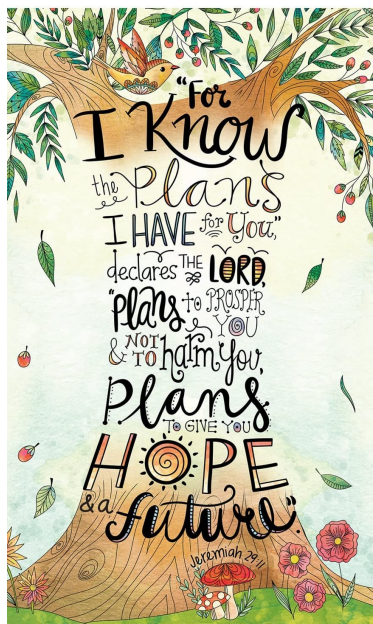 "For
I Know
the Plans
I HAVE for You,"
declares THE LORD,
"Plans to PROSPER
YOU
& NOT TO harm You,
Plans
TO GIVE YOU
HOPE
& a future".
Jeremiah 29:11